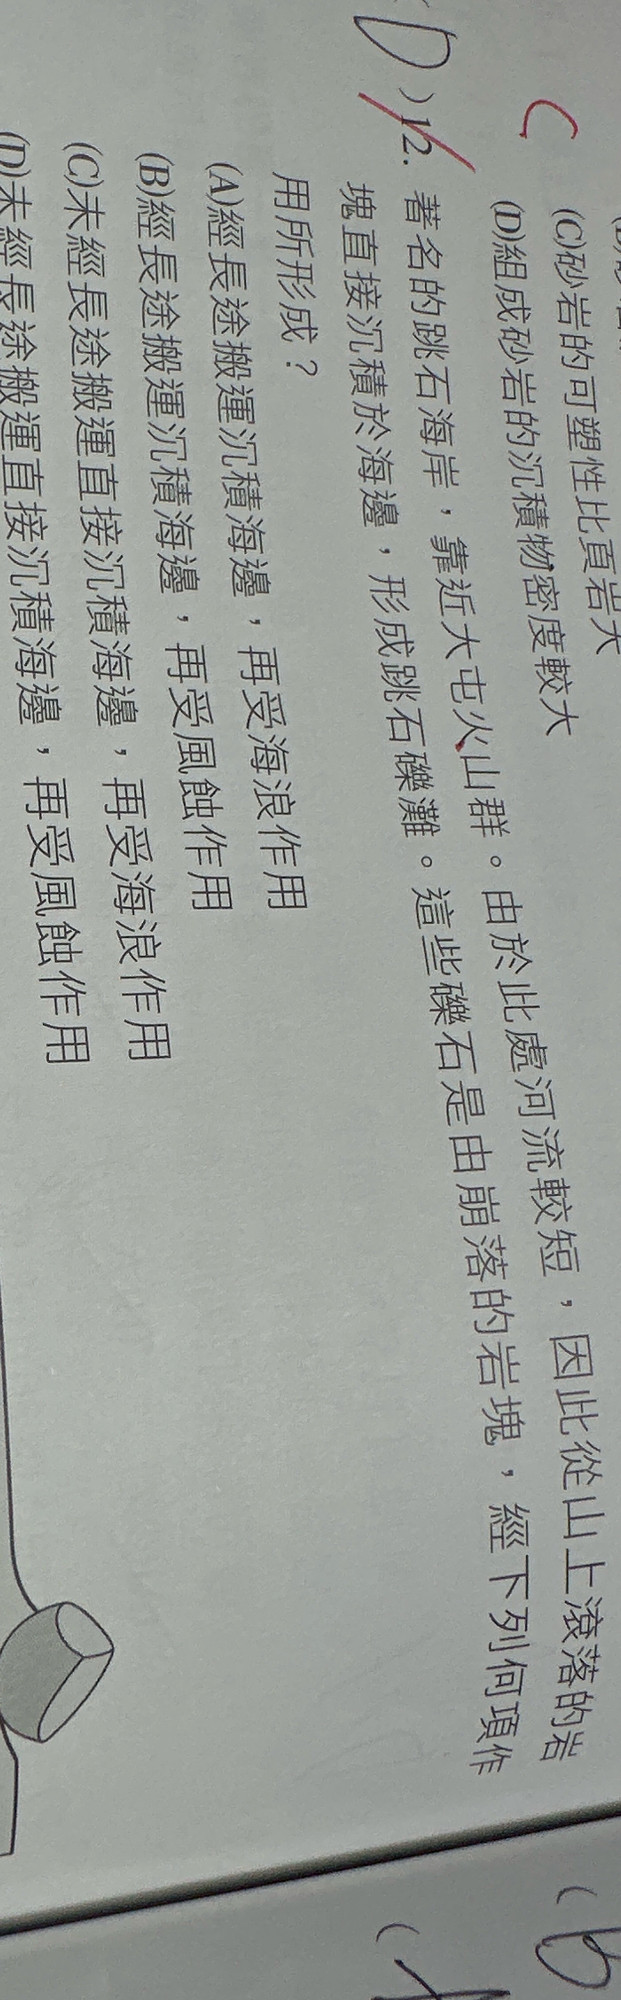 (C)砂岩的可塑性比頁岩大
(D)組成砂岩的沉積物密度較大
C
D )12. 著名的跳石海岸，靠近大屯火山群。由於此處河流較短，因此從山上滾落的岩
塊直接沉積於海邊，形成跳石礫灘。這些礫石是由崩落的岩塊，經下列何項作
用所形成？
(A)經長途搬運沉積海邊，再受海浪作用
(B)經長途搬運沉積海邊，再受風蝕作用
(C)未經長途搬運直接沉積海邊，再受海浪作用
(D)未經長途搬運直接沉積海邊，再受風蝕作用
( B
( A